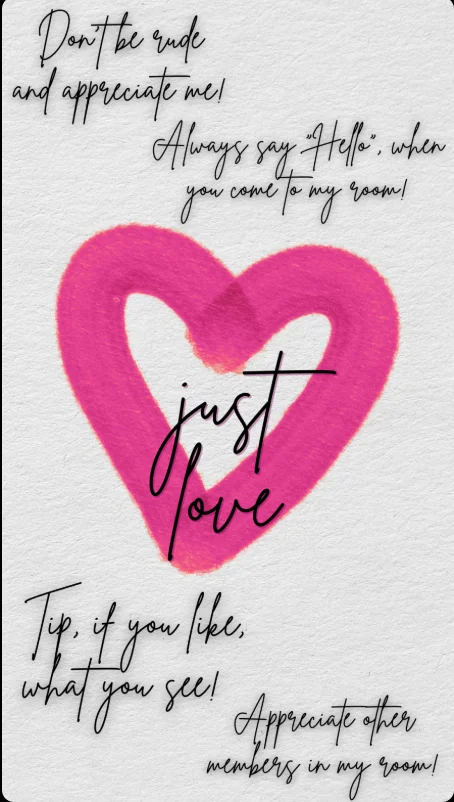 Don't be rude
and appreciate me!
Always say "Hello", when
you come to my room!
just
love
Tip, if you like,
what you see!
Appreciate other
members in my room!